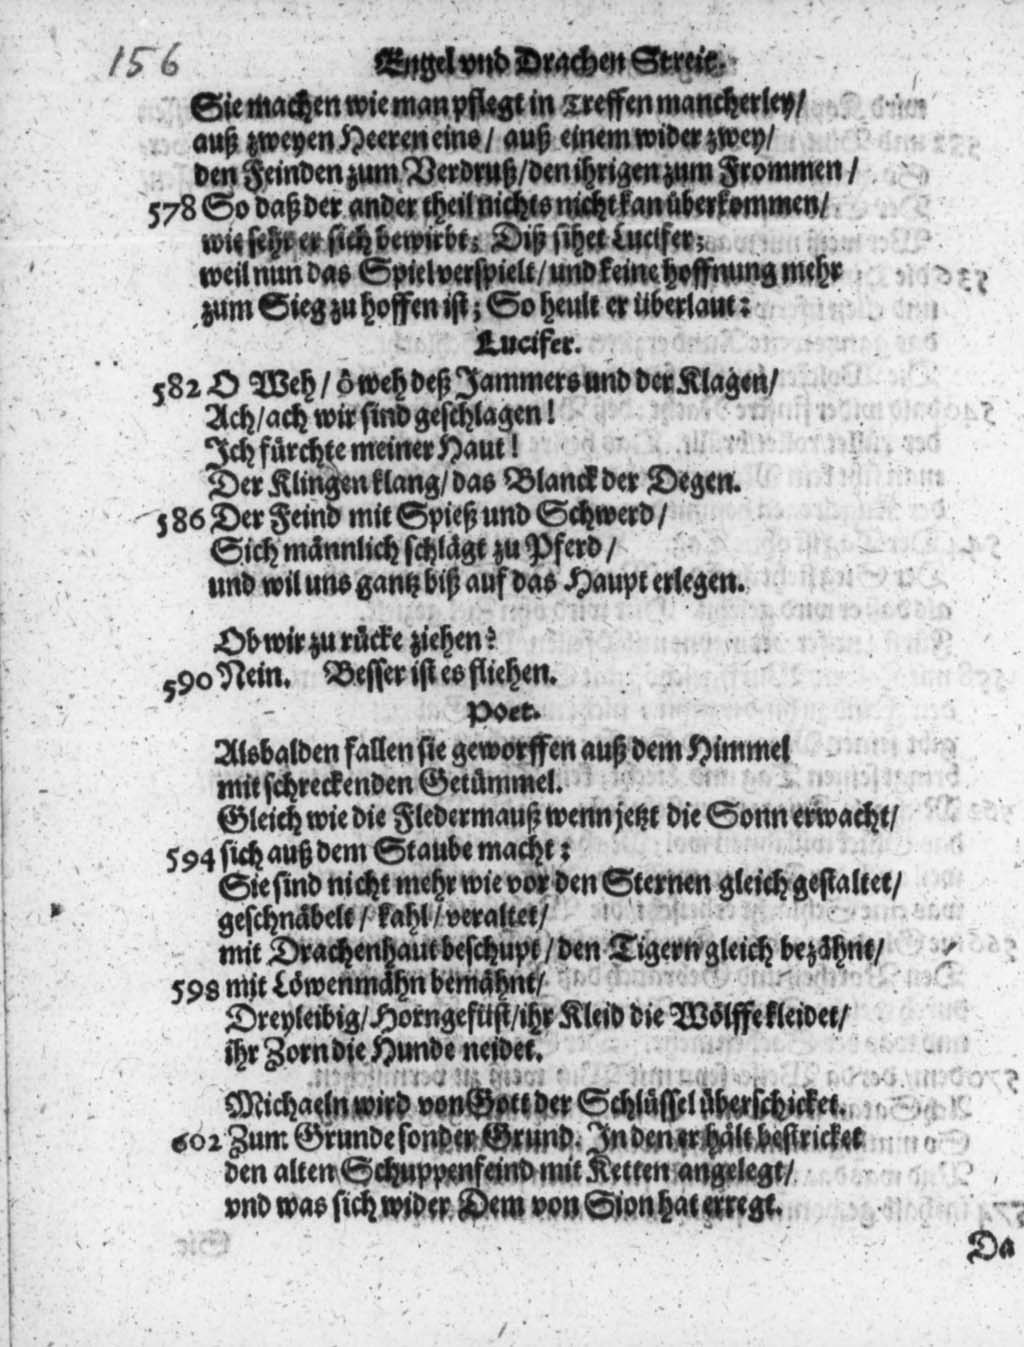 156 Engel vnd Drachen Streit.
Sie machen wie man pflegt in Treffen mancherley/
auß zweyen Heeren eins/ auß einem wider zwey/
den Feinden zum Verdruß/den ihrigen zum Frommen /
578 So daß der ander theil nichts nicht kan überkommen/
wie sehr er sich bewirbt; Diß sihet Lucifer;
weil nun das Spiel verspielt/ und keine hoffnung mehr
zum Sieg zu hoffen ist; So heult er überlaut:
Lucifer.
582 O Weh/ ô weh deß Jammers und der Klagen/
Ach/ach wir sind geschlagen!
Ich fürchte meiner Haut!
Der Klingen klang/das Blanck der Degen.
586 Der Feind mit Spieß und Schwerd/
Sich männlich schlägt zu Pferd/
und wil uns gantz biß auf das Haupt erlegen.
Ob wir zu rücke ziehen?
590 Nein. Besser ist es fliehen.
Poet.
Alsbalden fallen sie geworffen auß dem Himmel
mit schreckenden Getümmel.
Gleich wie die Fledermauß wenn jetzt die Sonn erwacht/
594 sich auß dem Staube macht:
Sie sind nicht mehr wie vor den Sternen gleich gestaltet/
geschnäbelt/ kahl/ veraltet/
mit Drachenhaut beschupt/ den Tigern gleich bezähnt/
598 mit Löwenmähn bemähnt/
Dreyleibig/ ihr Kleid die Wölffe kleidet/
ihr Zorn die Hunde neidet.
Michaeln wird von Gott der Schlüssel überschicket.
602 Zum Grunde sonder Grund. In den er hält bestricket
den alten Schuppenfeind mit Ketten angelegt/
vnd was sich wider Dem von Sion hat erregt.
Da